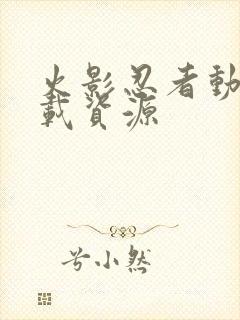 火影忍者動
載資源
兮小然